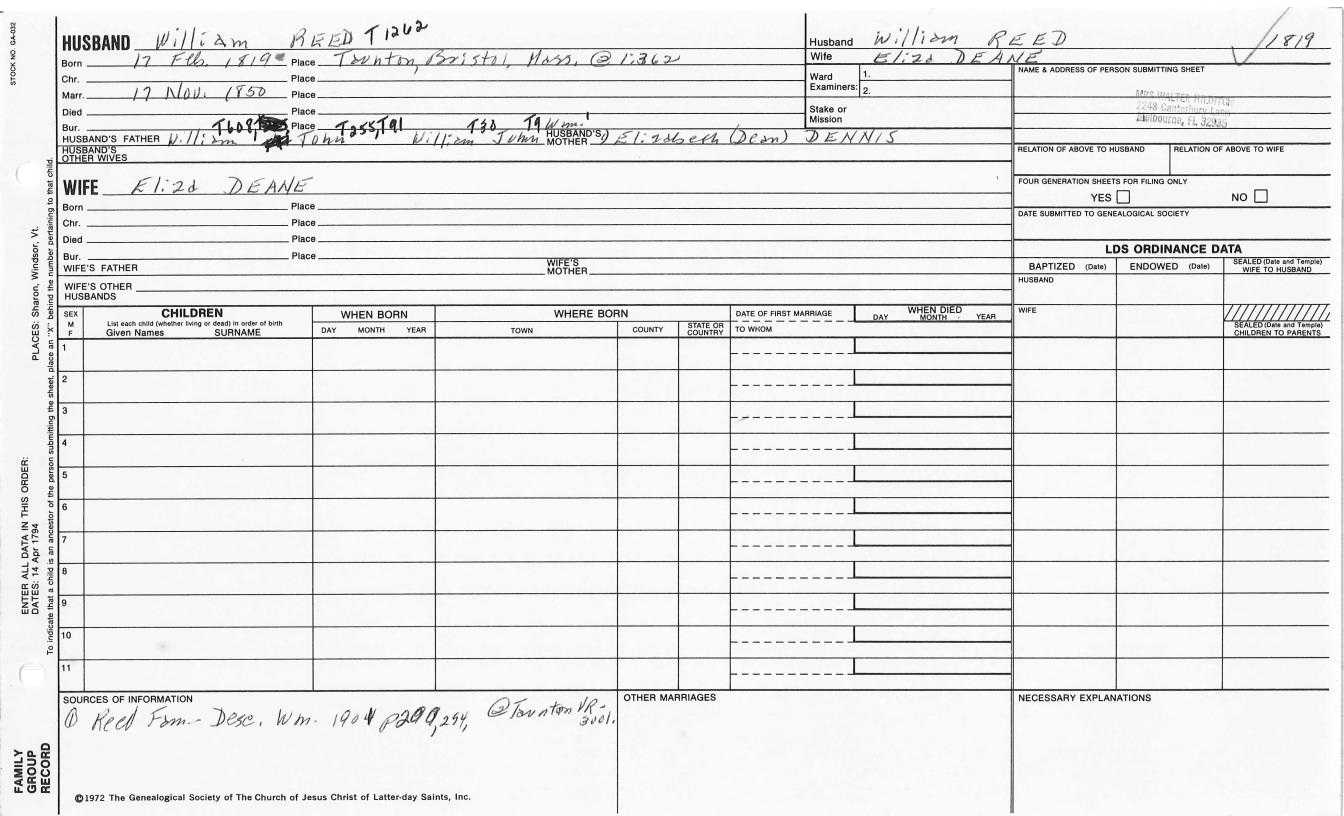 STOCK NO. GA-032
HUSBAND William REED T1262
Born 17 Feb. 1819 Place Taunton, Bristol, Mass. @ 1:362
Chr. Place
Marr. 17 Nov. 1850 Place
Died Place
Bur. Place
T608, T255, T91 T30 T9 Wm.1
HUSBAND'S FATHER William John William John HUSBAND'S MOTHER Elizabeth (Dean) DENNIS
HUSBAND'S OTHER WIVES
Husband William REED
Wife Eliza DEANE
1819
Ward Examiners: 1.
2.
Stake or Mission
NAME & ADDRESS OF PERSON SUBMITTING SHEET
MRS WALTER
2248 Canterbury Lane
Melbourne, FL 32935
RELATION OF ABOVE TO HUSBAND RELATION OF ABOVE TO WIFE
FOUR GENERATION SHEETS FOR FILING ONLY
YES NO
DATE SUBMITTED TO GENEALOGICAL SOCIETY
WIFE Eliza DEANE
Born Place
Chr. Place
Died Place
Bur. Place
WIFE'S FATHER WIFE'S MOTHER
WIFE'S OTHER HUSBANDS
LDS ORDINANCE DATA
BAPTIZED (Date) ENDOWED (Date) SEALED (Date and Temple) WIFE TO HUSBAND
HUSBAND
WIFE
SEALED (Date and Temple) CHILDREN TO PARENTS
SEX M F
CHILDREN
List each child (whether living or dead) in order of birth
Given Names SURNAME
WHEN BORN
DAY MONTH YEAR
WHERE BORN
TOWN COUNTY STATE OR COUNTRY
DATE OF FIRST MARRIAGE
TO WHOM
WHEN DIED
DAY MONTH YEAR
1
2
3
4
5
6
7
8
9
10
11
SOURCES OF INFORMATION
① Reed Fam.- Desc. Wm. 1904 p200, 294, @ Taunton VR-
3001.
OTHER MARRIAGES
NECESSARY EXPLANATIONS
©1972 The Genealogical Society of The Church of Jesus Christ of Latter-day Saints, Inc.
PLACES: Sharon, Windsor, Vt.
To indicate that a child is an ancestor of the person submitting the sheet, place an "X" behind the number pertaining to that child.
ENTER ALL DATA IN THIS ORDER:
DATES: 14 Apr 1794
FAMILY
GROUP
RECORD